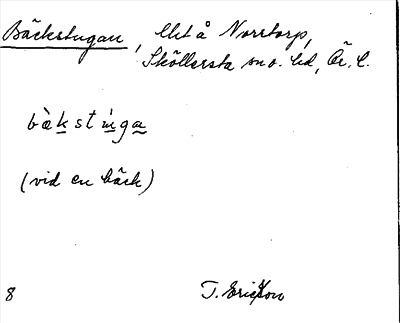 Bäckstugan, lht å Norrtorp,
Sköllersta sn o. hd, Ör. l.
bæ̀kstìnga
(vid en bäck)
8 T. Ericsson